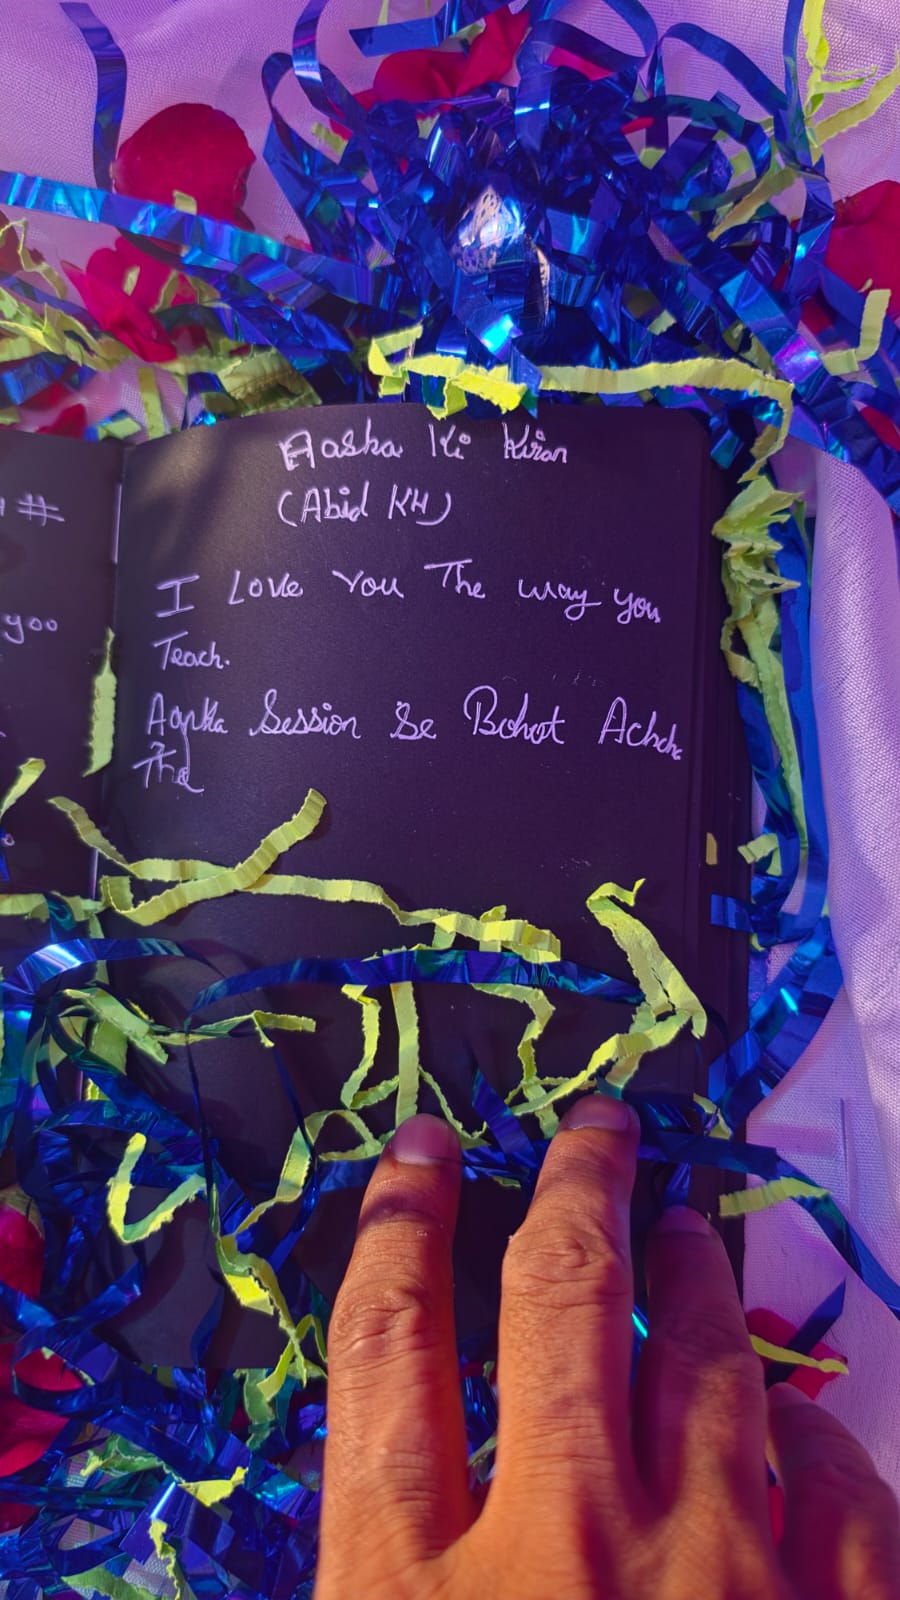 #
yoo
Aasha Ki Kiran
(Abid KH)
I Love You The way you
Teach.
Aapka Session Se Bohot Achche
The